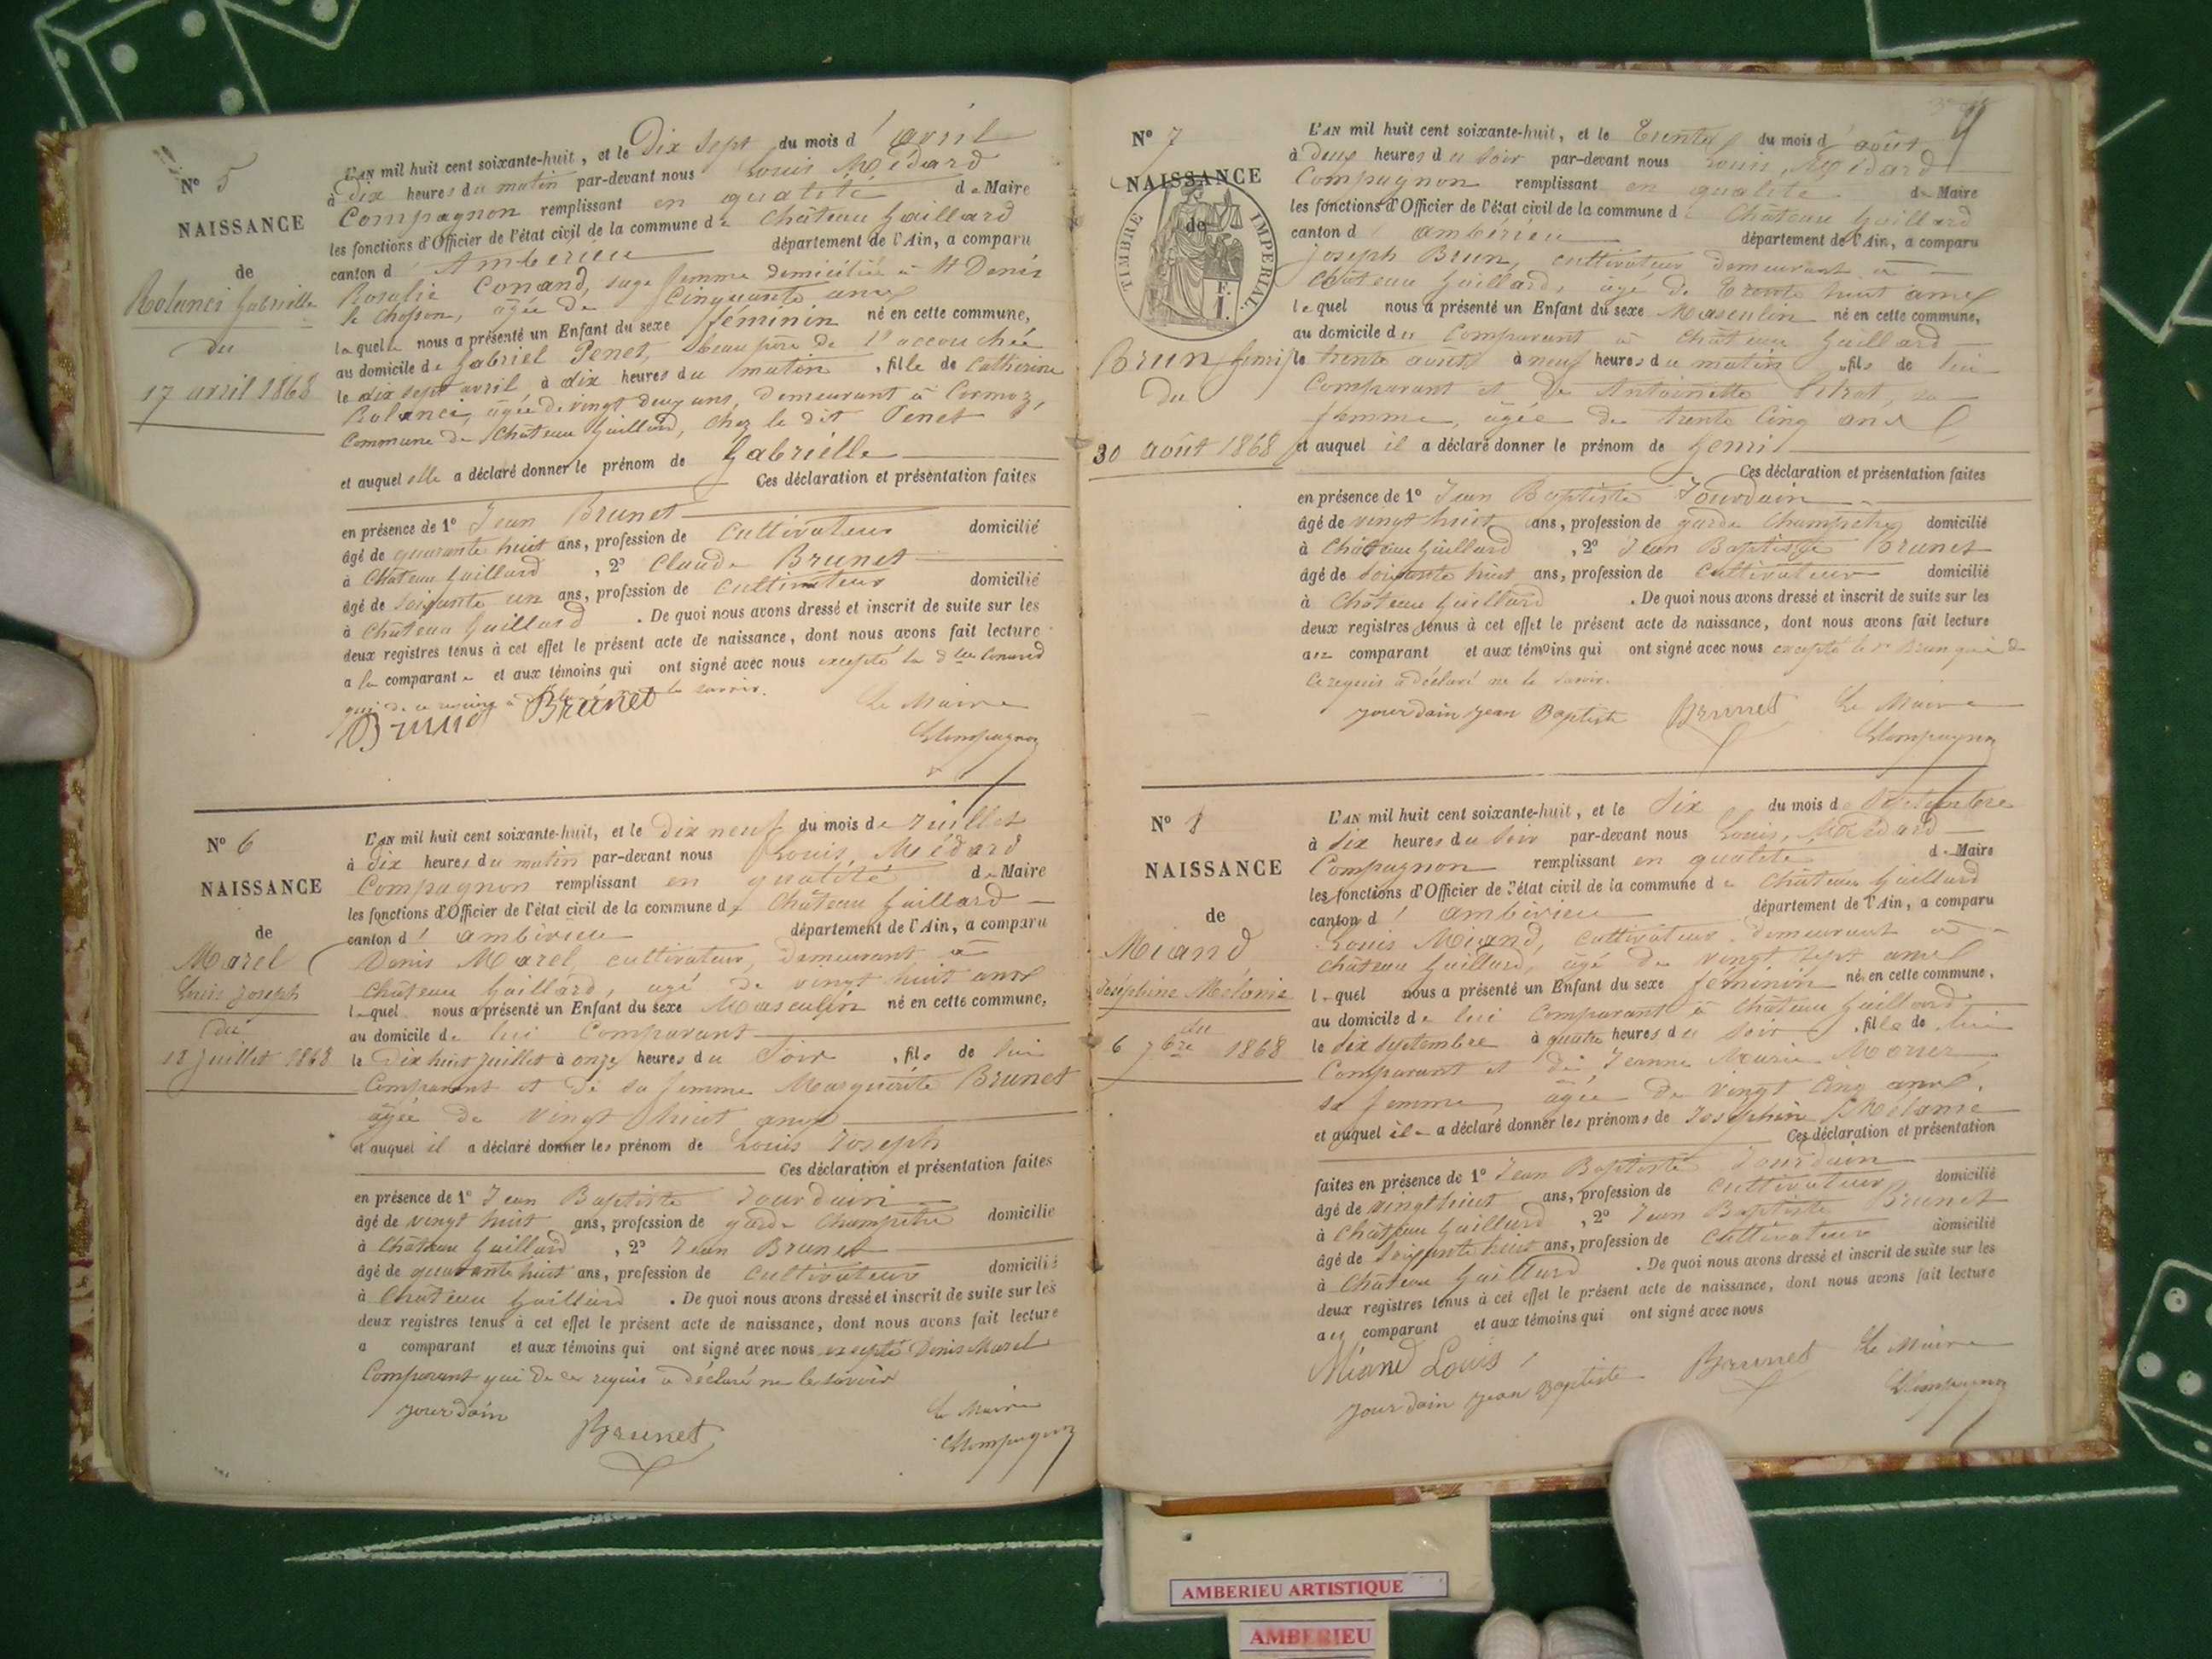 N° 5
NAISSANCE
de
Rolanci Gabrielle
du
17 avril 1868
L'AN mil huit cent soixante-huit, et le Dix Sept du mois d'avril
à dix heures du matin par-devant nous Louis Médard
Compagnon remplissant en qualité de Maire
les fonctions d'Officier de l'état civil de la commune de Château Gaillard
canton d'Amberieu département de l'Ain, a comparu
Rosalie Conand, sage femme domiciliée à St Denis
le Chosson, âgée de Cinquante ans
laquelle nous a présenté un Enfant du sexe féminin né en cette commune,
au domicile de Gabriel Penet, beau père de l'accouchée
le dix sept avril à dix heures du matin, fille de Catherine
Rolanci, âgée de vingt deux ans, demeurant à Cormoz,
Commune de Château Gaillard, chez le dit Penet
et auquel elle a déclaré donner le prénom de Gabrielle
Ces déclaration et présentation faites
en présence de 1° Jean Brunet
âgé de quarante huit ans, profession de cultivateur domicilié
à Château Gaillard, 2° Claude Brunet
âgé de soixante un ans, profession de cultivateur domicilié
à Château Gaillard. De quoi nous avons dressé et inscrit de suite sur les
deux registres tenus à cet effet le présent acte de naissance, dont nous avons fait lecture
a la comparante et aux témoins qui ont signé avec nous excepté la dlle Conand
qui de ce requise a déclaré ne le savoir.
Brunet Brunet Le Maire
LCompagnon
N° 6
NAISSANCE
de
Marel
Louis Joseph
du
18 Juillet 1868
L'AN mil huit cent soixante-huit, et le Dix neuf du mois de Juillet
à Dix heures du matin par-devant nous Louis, Médard
Compagnon remplissant en qualité de Maire
les fonctions d'Officier de l'état civil de la commune de Château Gaillard
canton d'Amberieu département de l'Ain, a comparu
Denis Marel, cultivateur, demeurant à
Château Gaillard, agé de vingt huit ans
lequel nous a présenté un Enfant du sexe Masculin né en cette commune,
au domicile de lui Comparant
le Dix huit Juillet à onze heures du Soir, fils de lui
Comparant et de sa femme Marguerite Brunet
agée de vingt huit ans
et auquel il a déclaré donner les prénom de Louis Joseph
Ces déclaration et présentation faites
en présence de 1° Jean Baptiste Jourdain
âgé de vingt huit ans, profession de garde Champêtre domicilié
à Château Gaillard, 2° Jean Brunet
âgé de quarante huit ans, profession de cultivateur domicilié
à Château Gaillard. De quoi nous avons dressé et inscrit de suite sur les
deux registres tenus à cet effet le présent acte de naissance, dont nous avons fait lecture
a comparant et aux témoins qui ont signé avec nous excepté Denis Marel
Comparant qui de ce requis a déclaré ne le savoir
jourdain Brunet Le Maire
LCompagnon
4
N° 7
NAISSANCE
de
TIMBRE IMPERIAL
Brun Henri
du
30 août 1868
L'AN mil huit cent soixante-huit, et le trente du mois d'août
à deux heures du soir par-devant nous Louis, Médard
Compagnon remplissant en qualité de Maire
les fonctions d'Officier de l'état civil de la commune de Château Gaillard
canton d'Amberieu département de l'Ain, a comparu
Joseph Brun, cultivateur demeurant à
Château Gaillard, agé de trente huit ans
lequel nous a présenté un Enfant du sexe Masculin né en cette commune,
au domicile du Comparant à Château Gaillard
le trente août à neuf heures du matin, fils de lui
Comparant et de Antoinette sa
femme, âgée de trente cinq ans
et auquel il a déclaré donner le prénom de Henri
Ces déclaration et présentation faites
en présence de 1° Jean Baptiste Jourdain
âgé de vingt huit ans, profession de garde Champêtre domicilié
à Château Gaillard, 2° Jean Baptiste Brunet
âgé de soixante huit ans, profession de Cultivateur domicilié
à Château Gaillard. De quoi nous avons dressé et inscrit de suite sur les
deux registres tenus à cet effet le présent acte de naissance, dont nous avons fait lecture
au comparant et aux témoins qui ont signé avec nous excepté le sr Brun qui de
ce requis a déclaré ne le savoir.
jourdain jean Baptiste Brunet Le Maire
LCompagnon
N° 8
NAISSANCE
de
Miand
Joséphine Mélanie
du
6 7bre 1868
L'AN mil huit cent soixante-huit, et le Six du mois de Septembre
à six heures du soir par-devant nous Louis, Médard
Compagnon remplissant en qualité de Maire
les fonctions d'Officier de l'état civil de la commune de Château Gaillard
canton d'Amberieu département de l'Ain, a comparu
Louis Miand, cultivateur demeurant à
Château Gaillard, âgé de vingt sept ans
lequel nous a présenté un Enfant du sexe féminin né en cette commune,
au domicile de lui Comparant à Château Gaillard
le six septembre à quatre heures du soir, fille de lui
Comparant et de Jeanne Marie
sa femme, agée de vingt cinq ans.
et auquel il a déclaré donner les prénoms de Joséphine Mélanie
Ces déclaration et présentation
faites en présence de 1° Jean Baptiste Jourdain
âgé de vingt huit ans, profession de cultivateur domicilié
à Château Gaillard, 2° Jean Baptiste Brunet
âgé de soixante huit ans, profession de Cultivateur domicilié
à Château Gaillard. De quoi nous avons dressé et inscrit de suite sur les
deux registres tenus à cet effet le présent acte de naissance, dont nous avons fait lecture
au comparant et aux témoins qui ont signé avec nous
Miand Louis
jourdain jean Baptiste Brunet Le Maire
LCompagnon
AMBERIEU ARTISTIQUE
AMBERIEU